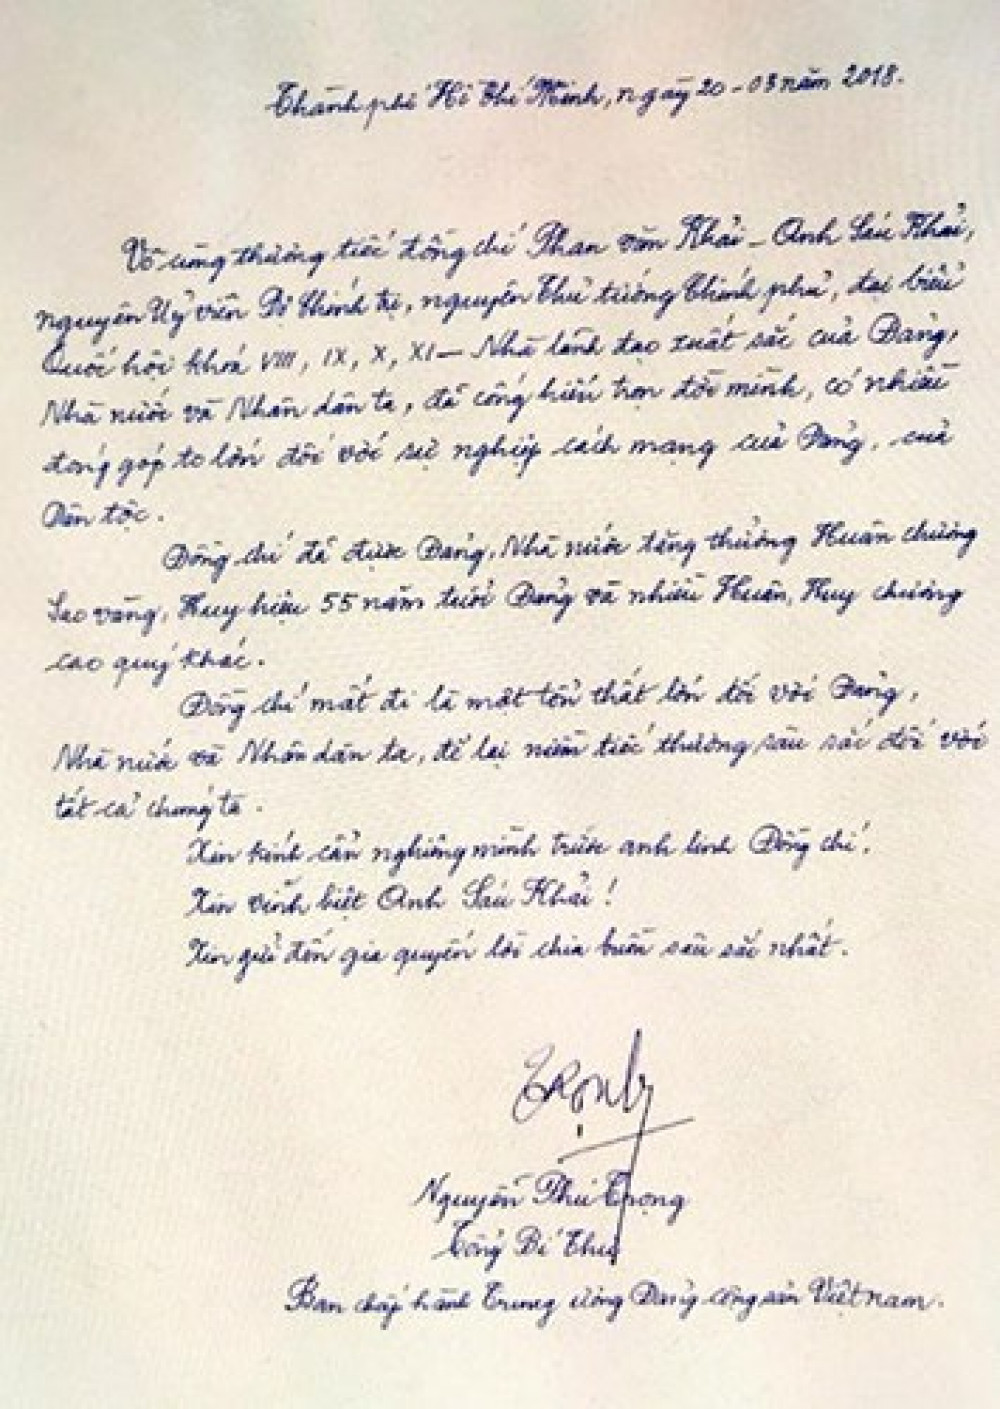 Thành phố Hồ Chí Minh, ngày 20-03 năm 2018.
Vô cùng thương tiếc đồng chí Phan Văn Khải - Anh Sáu Khải,
nguyên Uỷ viên Bộ Chính trị, nguyên Thủ tướng Chính phủ, đại biểu
Quốc hội khoá VIII, IX, X, XI - Nhà lãnh đạo xuất sắc của Đảng,
Nhà nước và Nhân dân ta, đã cống hiến trọn đời mình, có nhiều
đóng góp to lớn đối với sự nghiệp cách mạng của Đảng, của
Dân tộc.
Đồng chí đã được Đảng, Nhà nước tặng thưởng Huân chương
Sao vàng, Huy hiệu 55 năm tuổi Đảng và nhiều Huân, Huy chương
cao quý khác.
Đồng chí mất đi là một tổn thất lớn đối với Đảng,
Nhà nước và Nhân dân ta, để lại niềm tiếc thương sâu sắc đối với
tất cả chúng ta.
Xin kính cẩn nghiêng mình trước anh linh Đồng chí!
Xin vĩnh biệt Anh Sáu Khải!
Xin gửi đến gia quyến lời chia buồn sâu sắc nhất.
Trọng
Nguyễn Phú Trọng
Tổng Bí Thư
Ban chấp hành Trung ương Đảng cộng sản Việt nam.